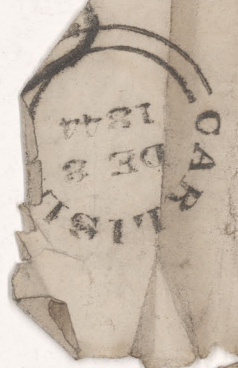 CARLISL
DE 8
1844